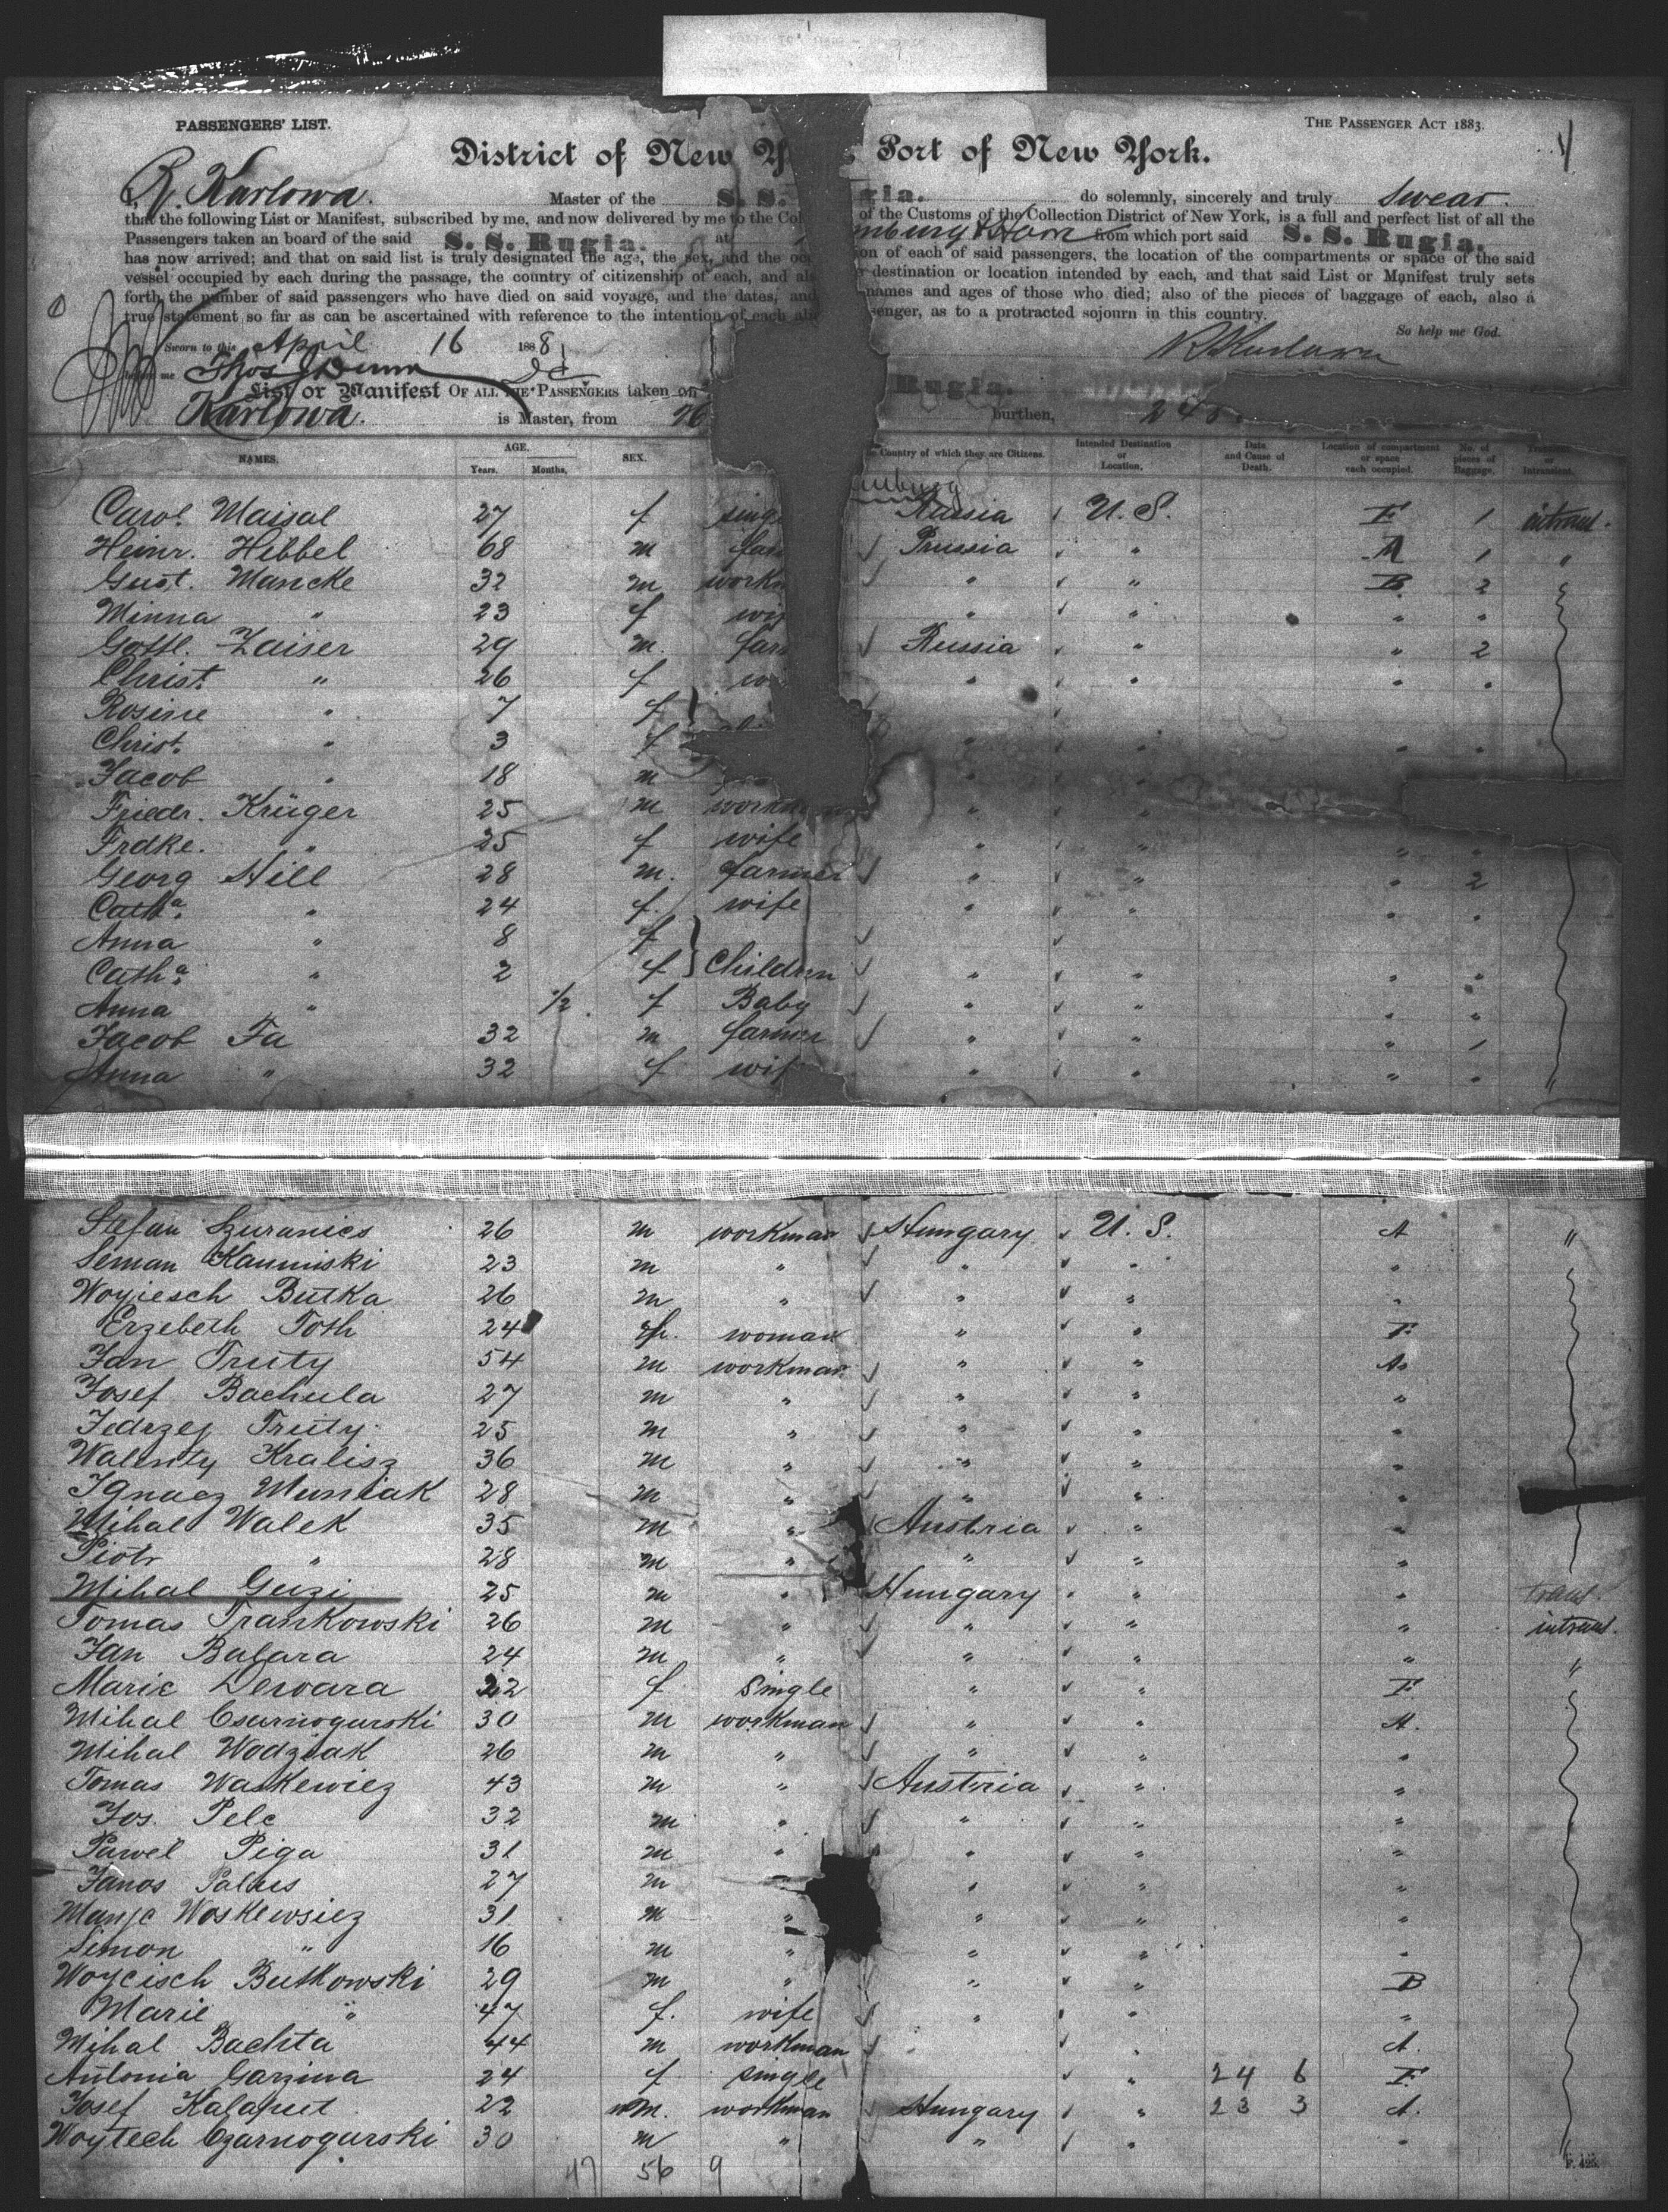 PASSENGERS' LIST.
THE PASSENGER ACT 1883.
4
District of New Y Port of New York.
I, R. Karlowa. Master of the S. S. gia. do solemnly, sincerely and truly swear.
that the following List or Manifest, subscribed by me, and now delivered by me to the Col of the Customs of the Collection District of New York, is a full and perfect list of all the
Passengers taken an board of the said S. S. Rugia. at mburg & Havre from which port said S. S. Rugia.
has now arrived; and that on said list is truly designated the age, the sex, and the occ on of each of said passengers, the location of the compartments or space of the said
vessel occupied by each during the passage, the country of citizenship of each, and als destination or location intended by each, and that said List or Manifest truly sets
forth the number of said passengers who have died on said voyage, and the dates, and names and ages of those who died; also of the pieces of baggage of each, also a
true statement so far as can be ascertained with reference to the intention of each ali senger, as to a protracted sojourn in this country.
So help me God.
Sworn to this April 16 1888 R Karlowa
before me Thos J Dunn
List or Manifest OF ALL THE PASSENGERS taken on Rugia.
Karlowa. is Master, from burthen,
NAMES. AGE. Years. Months, SEX. Country of which they are Citizens. Intended Destination or Location, Date and Cause of Death. Location of compartment or space each occupied. No. of pieces of Baggage, Transient or Intransient.
Carol. Maisal 27 f sing Russia U. S. F 1 intrans.
Heinr. Hibbel 68 m far Prussia " A 1 "
Gust. Mancke 32 m workm " " B 2
Minna " 23 f wif " " " "
Gottl. Zaiser 29 m. farm Russia " " 2
Christ. " 26 f wi " " " "
Rosine " 7 f
Christ. " 3 f " " "
Jacob " 18 m
Friedr. Krüger 25 m workman " "
Frdke. " 25 f wife " " " "
Georg Hill 28 m. farmer " " " 2
Catha. " 24 f. wife " " " "
Anna " 8 f
Catha. " 2 f Children " " " "
Anna " 1/2 f Baby " " " "
Jacob Fa 32 m farmer " " " 1
Anna " 32 f wif " " " " "
Stefan Szuranics 26 m workman Hungary U. S. A "
Seman Kaminski 23 m " " " "
Woyiesch Butka 26 m " " " "
Erzebeth Toth 24 f. woman " " F
Jan Truty 54 m workman " " A
Josef Bachula 27 m " " " "
Jedrzej Truty 25 m " " " "
Walenty Kralisz 36 m " " " "
Ignacz Muniak 28 m " " " "
Mihal Walek 35 m " Austria " "
Piotr " 28 m " " " "
Mihal Guzi 25 m " Hungary " " trans.
Tomas Trankowski 26 m " " " " intrans.
Jan Balara 24 m " " " " "
Marie Dewara 22 f single " " F
Mihal Csarnogurski 30 m workman " " A.
Mihal Wodziak 26 m " " " "
Tomas Waskewiez 43 m " Austria " "
Jos. Pelc 32 m " " " "
Pawel Piga 31 m " " " "
Janos Palkus 27 m " " "
Woskewsiez 31 m " " " "
Simon " 16 m " " " "
Woycisch Butkowski 29 m " " " B
Marie " 47 f. wife " " "
Mihal Bachta 44 m workman " A.
Antonia Garzina 24 f single " 24 6 F
Josef Kalaput 22 m. workman Hungary " 23 3 A.
Woytech Czarnogurski 30 m " " " "
47 56 9
F. 495.